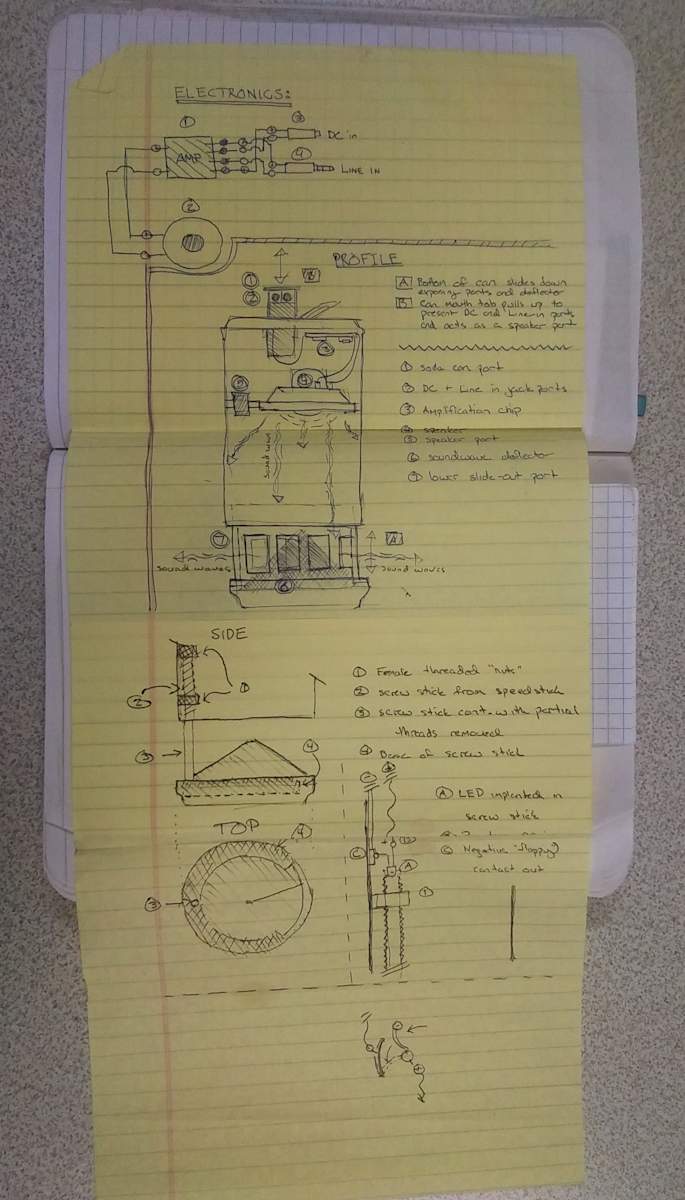 ELECTRONICS:
①
③
DC in
AMP
④
LINE IN
②
PROFILE
①
②
B
A Bottom of can slides down
exposing ports and deflector
B Can mouth tab pulls up to
present DC and Line-in ports
and acts as a speaker port
① soda can port
② DC + Line in jack ports
③ Amplification chip
④ speaker
⑤ speaker port
⑥ soundwave deflector
⑦ lower slide-out port
③
④
⑤
sound wave
⑦
A
sound waves
sound waves
⑥
SIDE
①
②
③
④
① Female threaded "nuts"
② screw stick from speedstick
③ screw stick cont. with partial
threads removed
④ Base of screw stick
TOP
④
③
Ⓐ LED implanted in
screw stick
Ⓒ Negative "floppy"
contact out
Ⓒ
Ⓐ
①